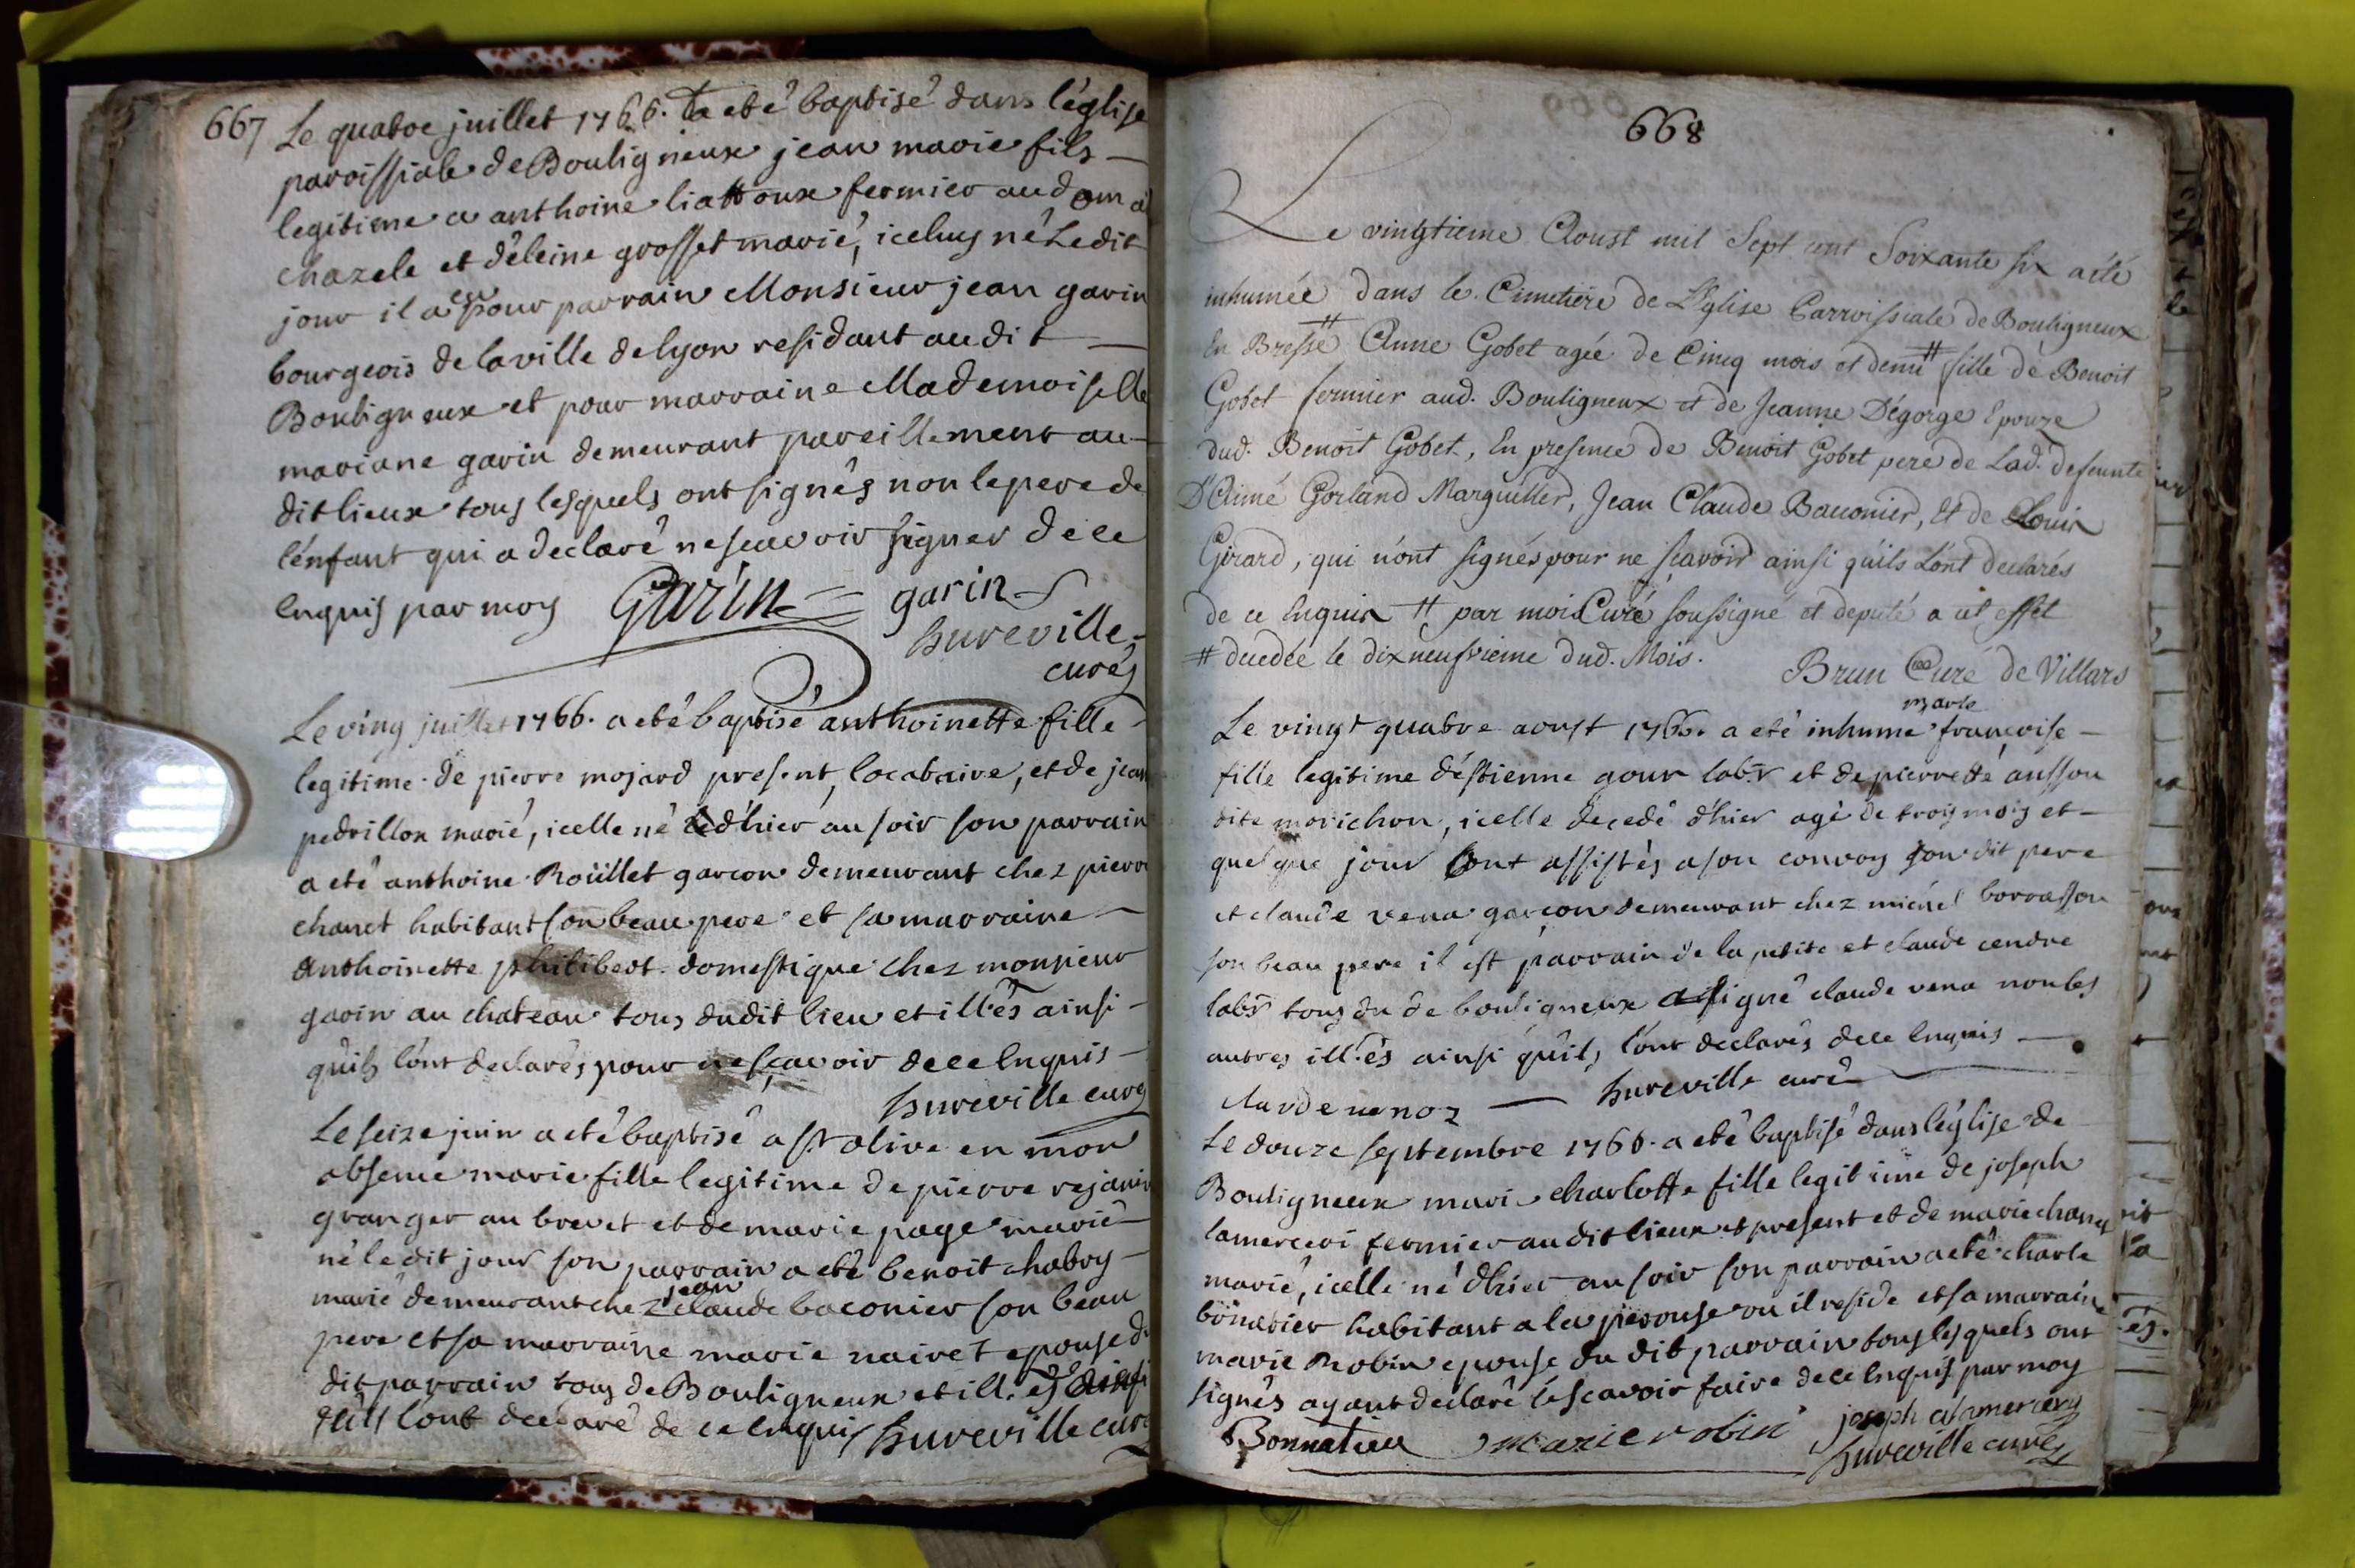 667
Le quatre juillet 1766. a eté baptisé dans l'église
paroissiale de Bouligneux jean marie fils
legitime a anthoine liattoux fermier au dom
chazele et d'éleine grosset marié, iceluy né Ledit
jour il a eu pour parrain Monsieur jean garin
bourgeois de la ville de lyon residant au dit
Bouligneux et pour marraine Mademoiselle
mariane garin demeurant pareillement au
dit lieux tous lesquels ont signés non le pere de
l'énfant qui a declaré ne scavoir signer de ce
Enquis par moy Garin garin
hureville
curé
Le ving juillet 1766. a eté baptisé anthoinette fille
legitime de pierre mojard present, locataire, et de jean
pedrillon marié, icelle né d'hier au soir son parrain
a eté anthoine Roüllet garcon demeurant chez pierre
chanet habitant son beau pere et sa marraine
anthoinette philibert domestique chez monsieur
garin au chateau tous dudit lieu et ill.és ainsi
quils l'ont declarés pour ne sçavoir de ce Enquis
hureville curé
Le seize juin a eté baptisé a st olive en mon
absence marie fille legitime de pierre rejanin
granger au brevet et de marie page marié
né le dit jour son parrain a eté benoit chabry
marié demeurant chez jean claude baconier son beau
pere et sa marraine marie nairet epouse du
dit parrain tous de Bouligneux et ill.és ainsi
quils l'ont declaré de ce enquis hureville curé
668
Le vingtieme Aoust mil Sept cent Soixante six a été
inhumée dans le Cimetière de L'Eglise Parroissiale de Bouligneux
En Bresse # Anne Gobet agée de Cinq mois et demi # fille de Benoit
Gobet fermier aud. Bouligneux et de Jeanne Dégorge Epouze
dud. Benoit Gobet, En presence de Benoit Gobet pere de Lad. defeunte
D'Aimé Gorland Marguillier, Jean Claude Bauonier, Et de Louis
Girard, qui n'ont signés pour ne sçavoir ainsi qu'ils L'ont declarés
de ce Enquis # par moi Curé soussigné et deputé a cet effet
# decedée le dixneufvieme dud. Mois. Brun Curé de Villars
marie
Le vingt quatre aoust 1766. a eté inhumé françoise
fille legitime d'éstienne gour labr et de pierrette ausson
dite morichon, icelle decedé d'hier agé de trois mois et
quelque jour ont assistés a son convoy son dit pere
et claude vena garçon demeurant chez michel borrasson
son beau pere il est parrain de la petite et claude cendre
labr tous du de bouligneux a signé claude vena non les
autres ill.és ainsi qu'ils l'ont declarés de ce enquis
claude venoz hureville curé
Le douze septembre 1766. a eté baptisé dans l'église de
Bouligneux marie charlotte fille legitime de joseph
lamerceri fermier au dit lieux et present et de marie chanet
marié, icelle né d'hier au soir son parrain a eté charle
bonatier habitant a la perouse ou il reside et sa marraine
marie Robin epouse du dit parrain tous lesquels ont
signés ayant declaré le scavoir faire de ce Enquis par moy
Bonnatier marie robin joseph alamercery
hureville curé